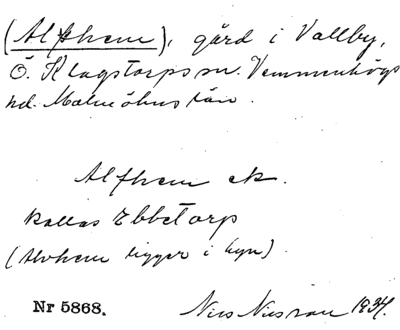 (Alfhem), gård i Vallby,
Ö. Klagstorps sn. Vemmenhögs
hd. Malmöhus län.
Alfhem ek.
kallas Ebbetorp
(Alvhem ligger i byn).
Nr 5868. Nils Nilsson 1934.